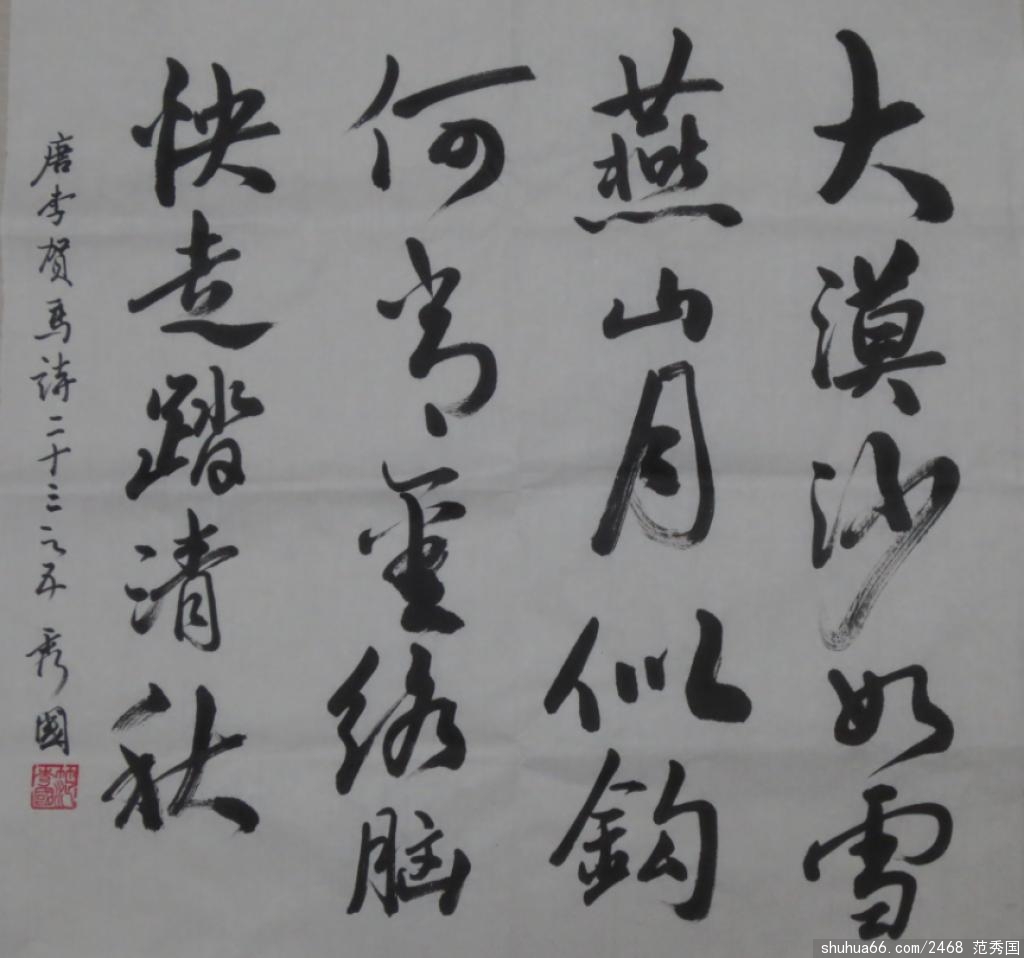 大漠沙如雪
燕山月似鈎
何當金絡脑
快走踏清秋
唐李賀馬詩二十三之五 秀國
shuhua66.com/2468 范秀国